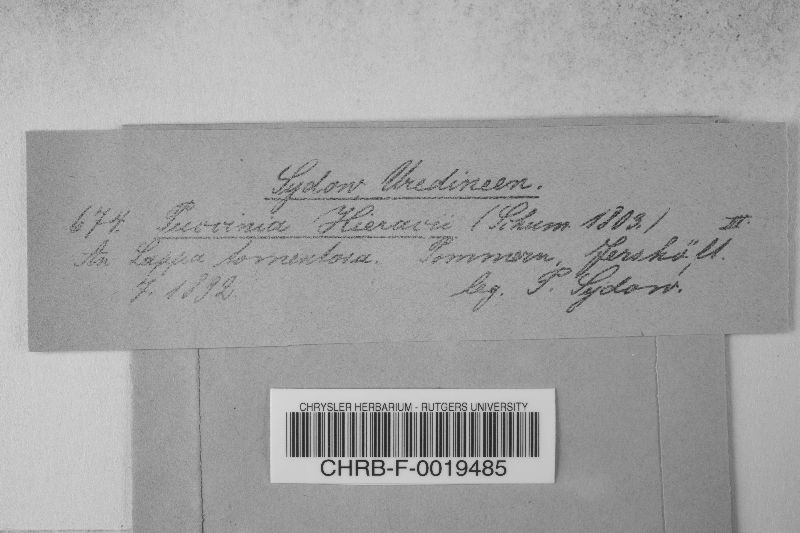 Sydow Uredineen.
674. Puccinia Hieracii (Schum. 1803.) III.
An Lappa tomentosa. Pommern, Jershöft.
7. 1892. leg. P. Sydow.
CHRYSLER HERBARIUM - RUTGERS UNIVERSITY
CHRB-F-0019485